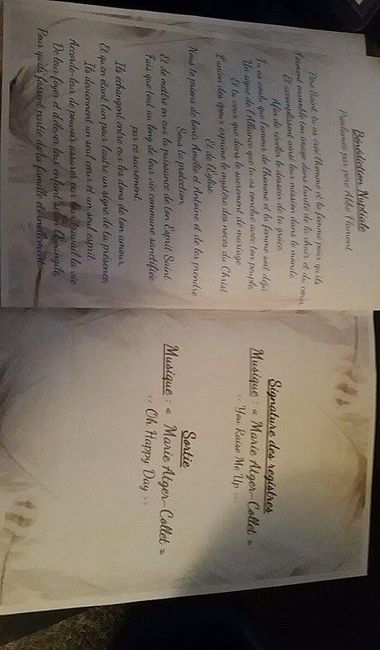 Bénédiction Nuptiale
Prononcée par père Abbé Flament
Père Saint, tu as créé l'homme et la femme pour qu'ils
forment ensemble ton image dans l'unité de la chair et du cœur,
Et accomplissent ainsi leur mission dans le monde.
Afin de révéler le dessein de ta grâce,
Tu as voulu que l'amour de l'homme et la femme soit déjà
Un signe de l'Alliance que tu as conclue avec ton peuple,
Et tu veux que dans le sacrement de mariage
L'union des époux exprime le mystère des noces du Christ
Et de l'Eglise.
Nous te prions de bénir et Antoine et de les prendre
Sous ta protection,
Et de mettre en eux la puissance de ton Esprit Saint.
Fais que tout au long de leur vie commune sanctifiée
par ce sacrement,
Ils échangent entre eux les dons de ton amour,
Et qu'en étant l'un pour l'autre un signe de ta présence,
Ils deviennent un seul cœur et un seul esprit.
Accorde-leur de pouvoir assurer par leur travail la vie
De leur foyer et d'élever leurs enfants selon l'Evangile,
Pour qu'ils fassent partie de ta famille éternellement
Signature des registres
Musique : « Marie Alger-Collet »
« You Raise Me Up »
Sortie
Musique : « Marie Alger-Collet »
« Oh Happy Day »